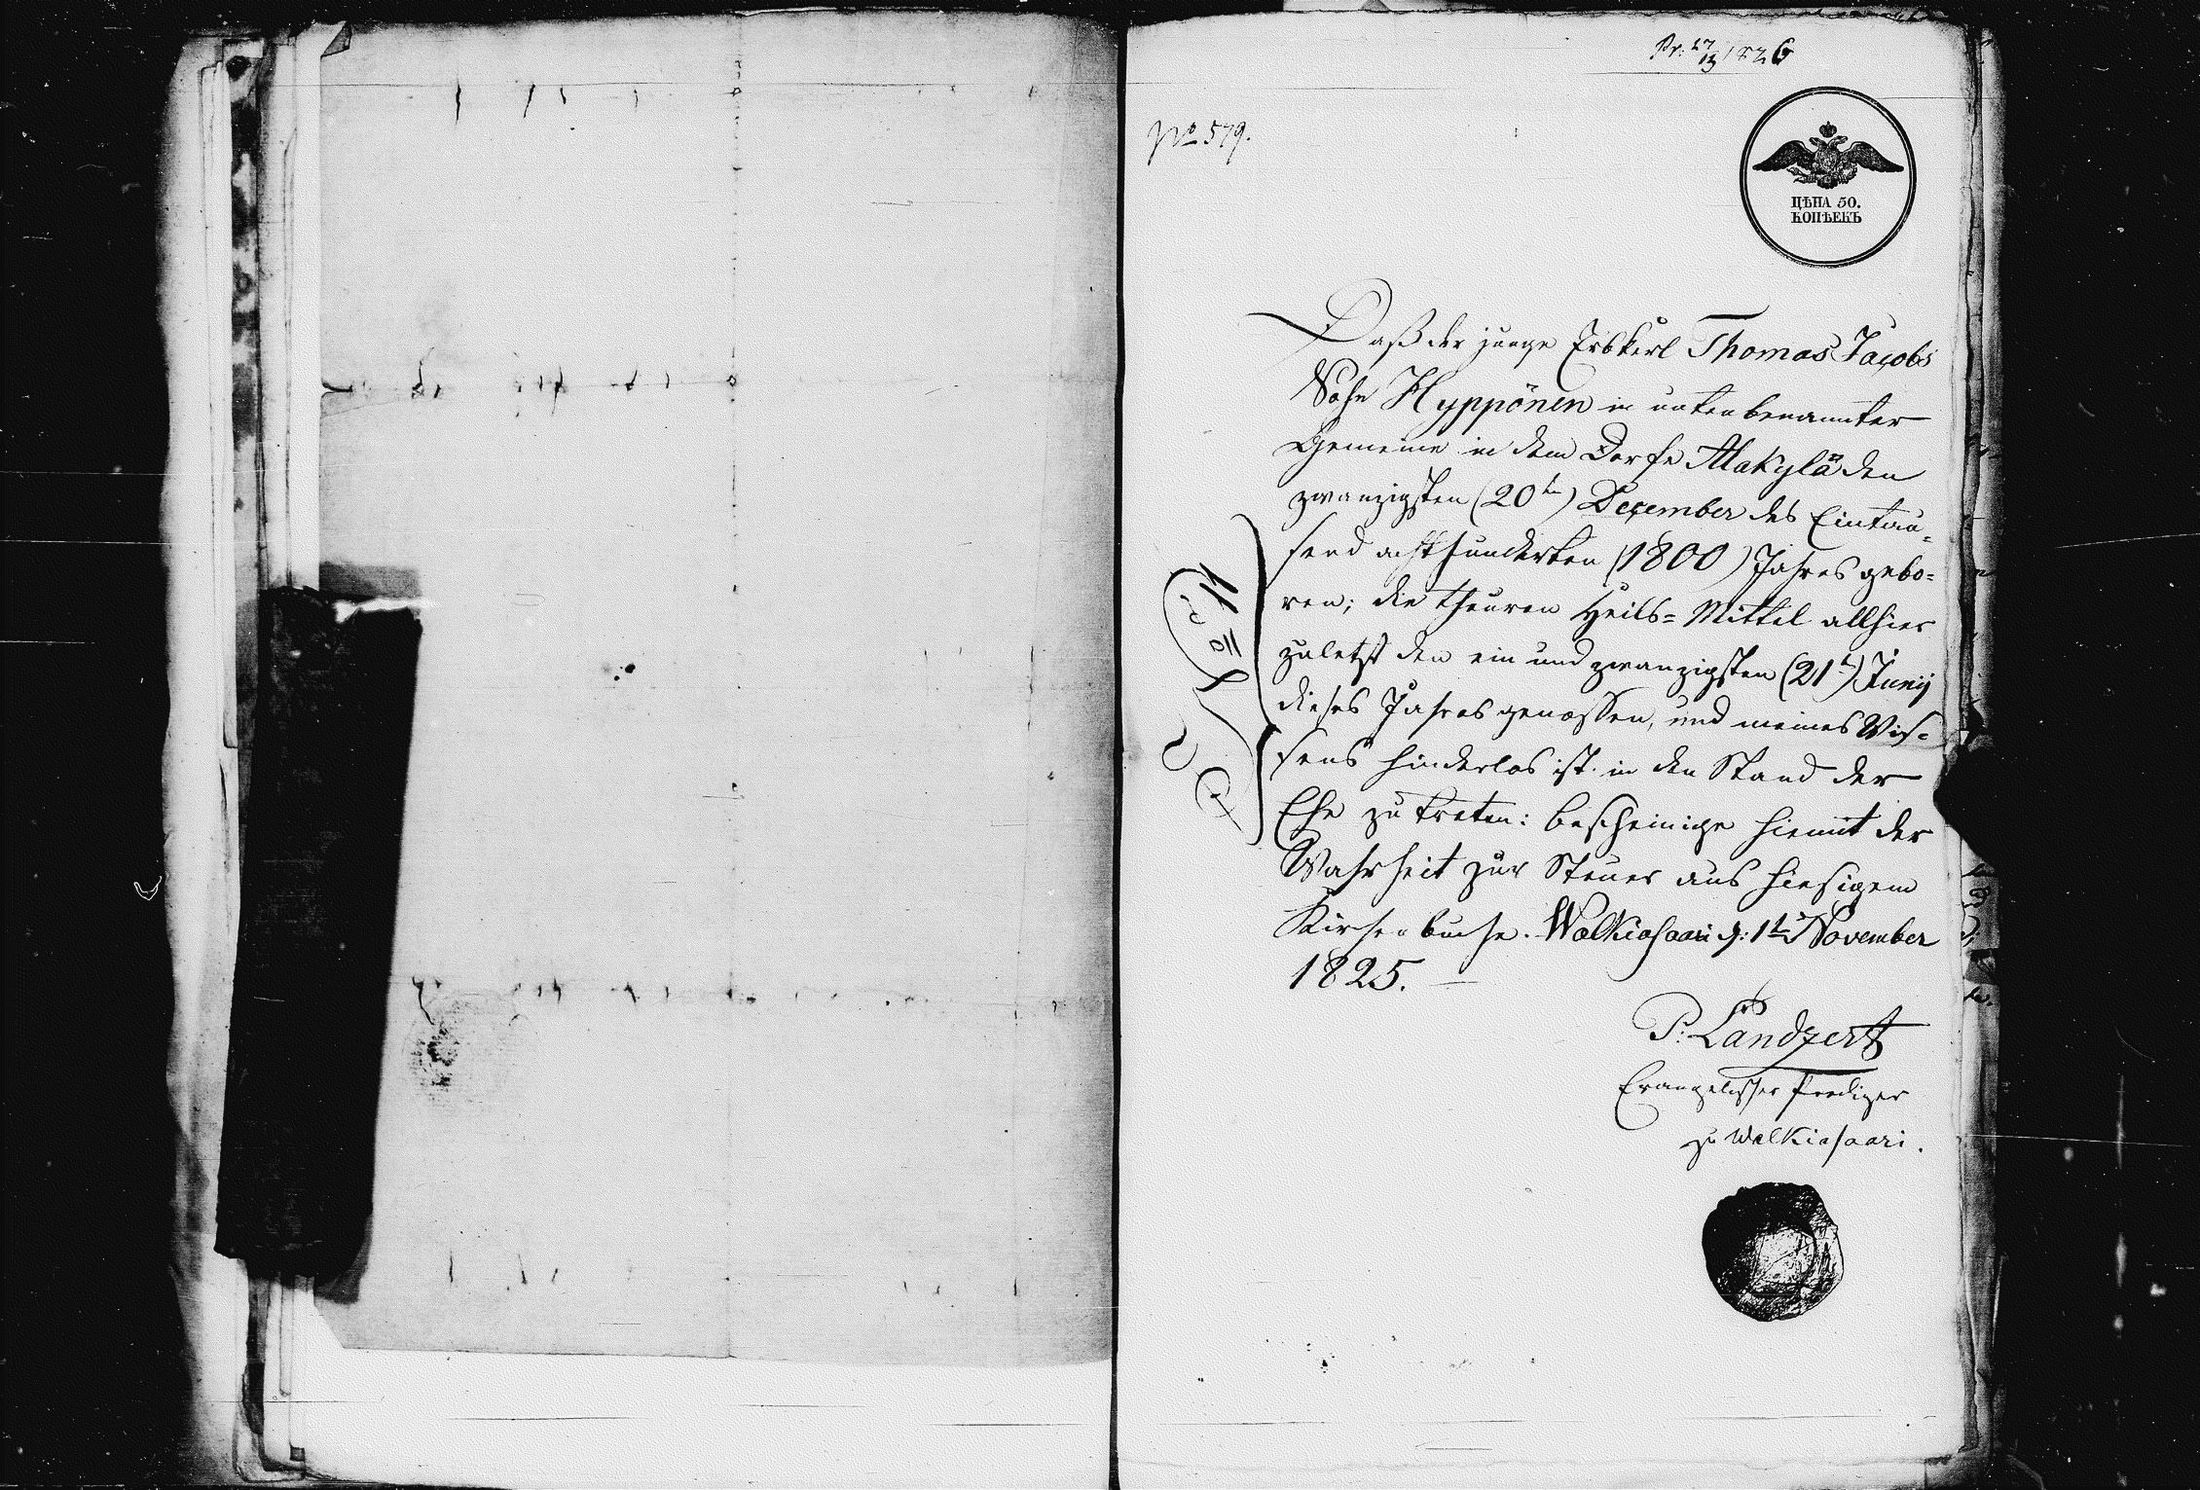 Pr: 27/13 1826
No 579.
ЦѢНА 50.
КОПѢЕКЪ
Daß der junge Erbkerl Thomas Jacobs
Sohn Hyppönen in unten benannter
Gemeine in dem Dorfe Alakylä den
zwanzigsten (20ten) December des Eintau=
send achthunderten (1800) Jahres gebo=
ren; die theuren Heils=Mittel allhier
zuletzt den ein und zwanzigsten (21t) Junij
dieses Jahres genossen, und meines Wis=
sens hinderlos ist in den Stand der
Ehe zu treten: bescheinige hiemit der
Wahrheit zur Steuer aus hiesigem
Kirchenbuche. Walkiasaari d: 1t November
1825.
P: Landzert
Evangelischer Prediger
zu Walkiasaari.